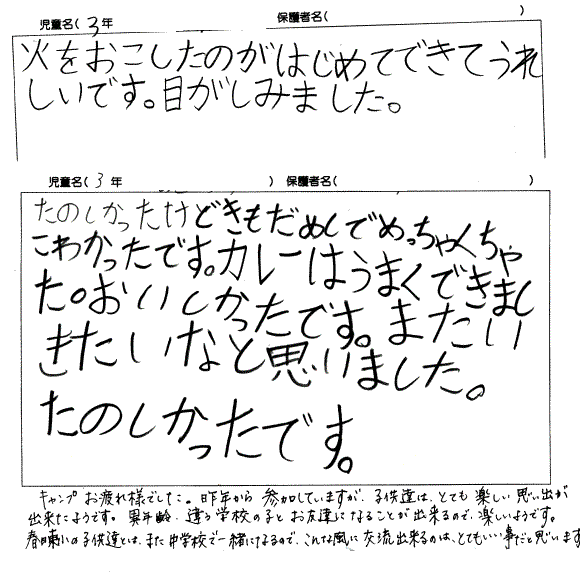 児童名( 3年 保護者名( )
火をおこしたのがはじめてできてうれ
しいです。目がしみました。
児童名( 3年 ) 保護者名( )
たのしかったけどきもだめしでめっちゃくちゃ
こわかったです。カレーはうまくできまし
た。おいしかったです。またい
きたいなと思いました。
たのしかったです。
キャンプ お疲れ様でした。昨年から 参加していますが、子供達は、とても 楽しい 思い出が
出来たようです。異年齢・違う学校の子と お友達になることが出来るので、楽しいようです。
の子供達とは、また中学校で一緒になるので、こんな風に 交流出来るのは、とてもいい事だと思います